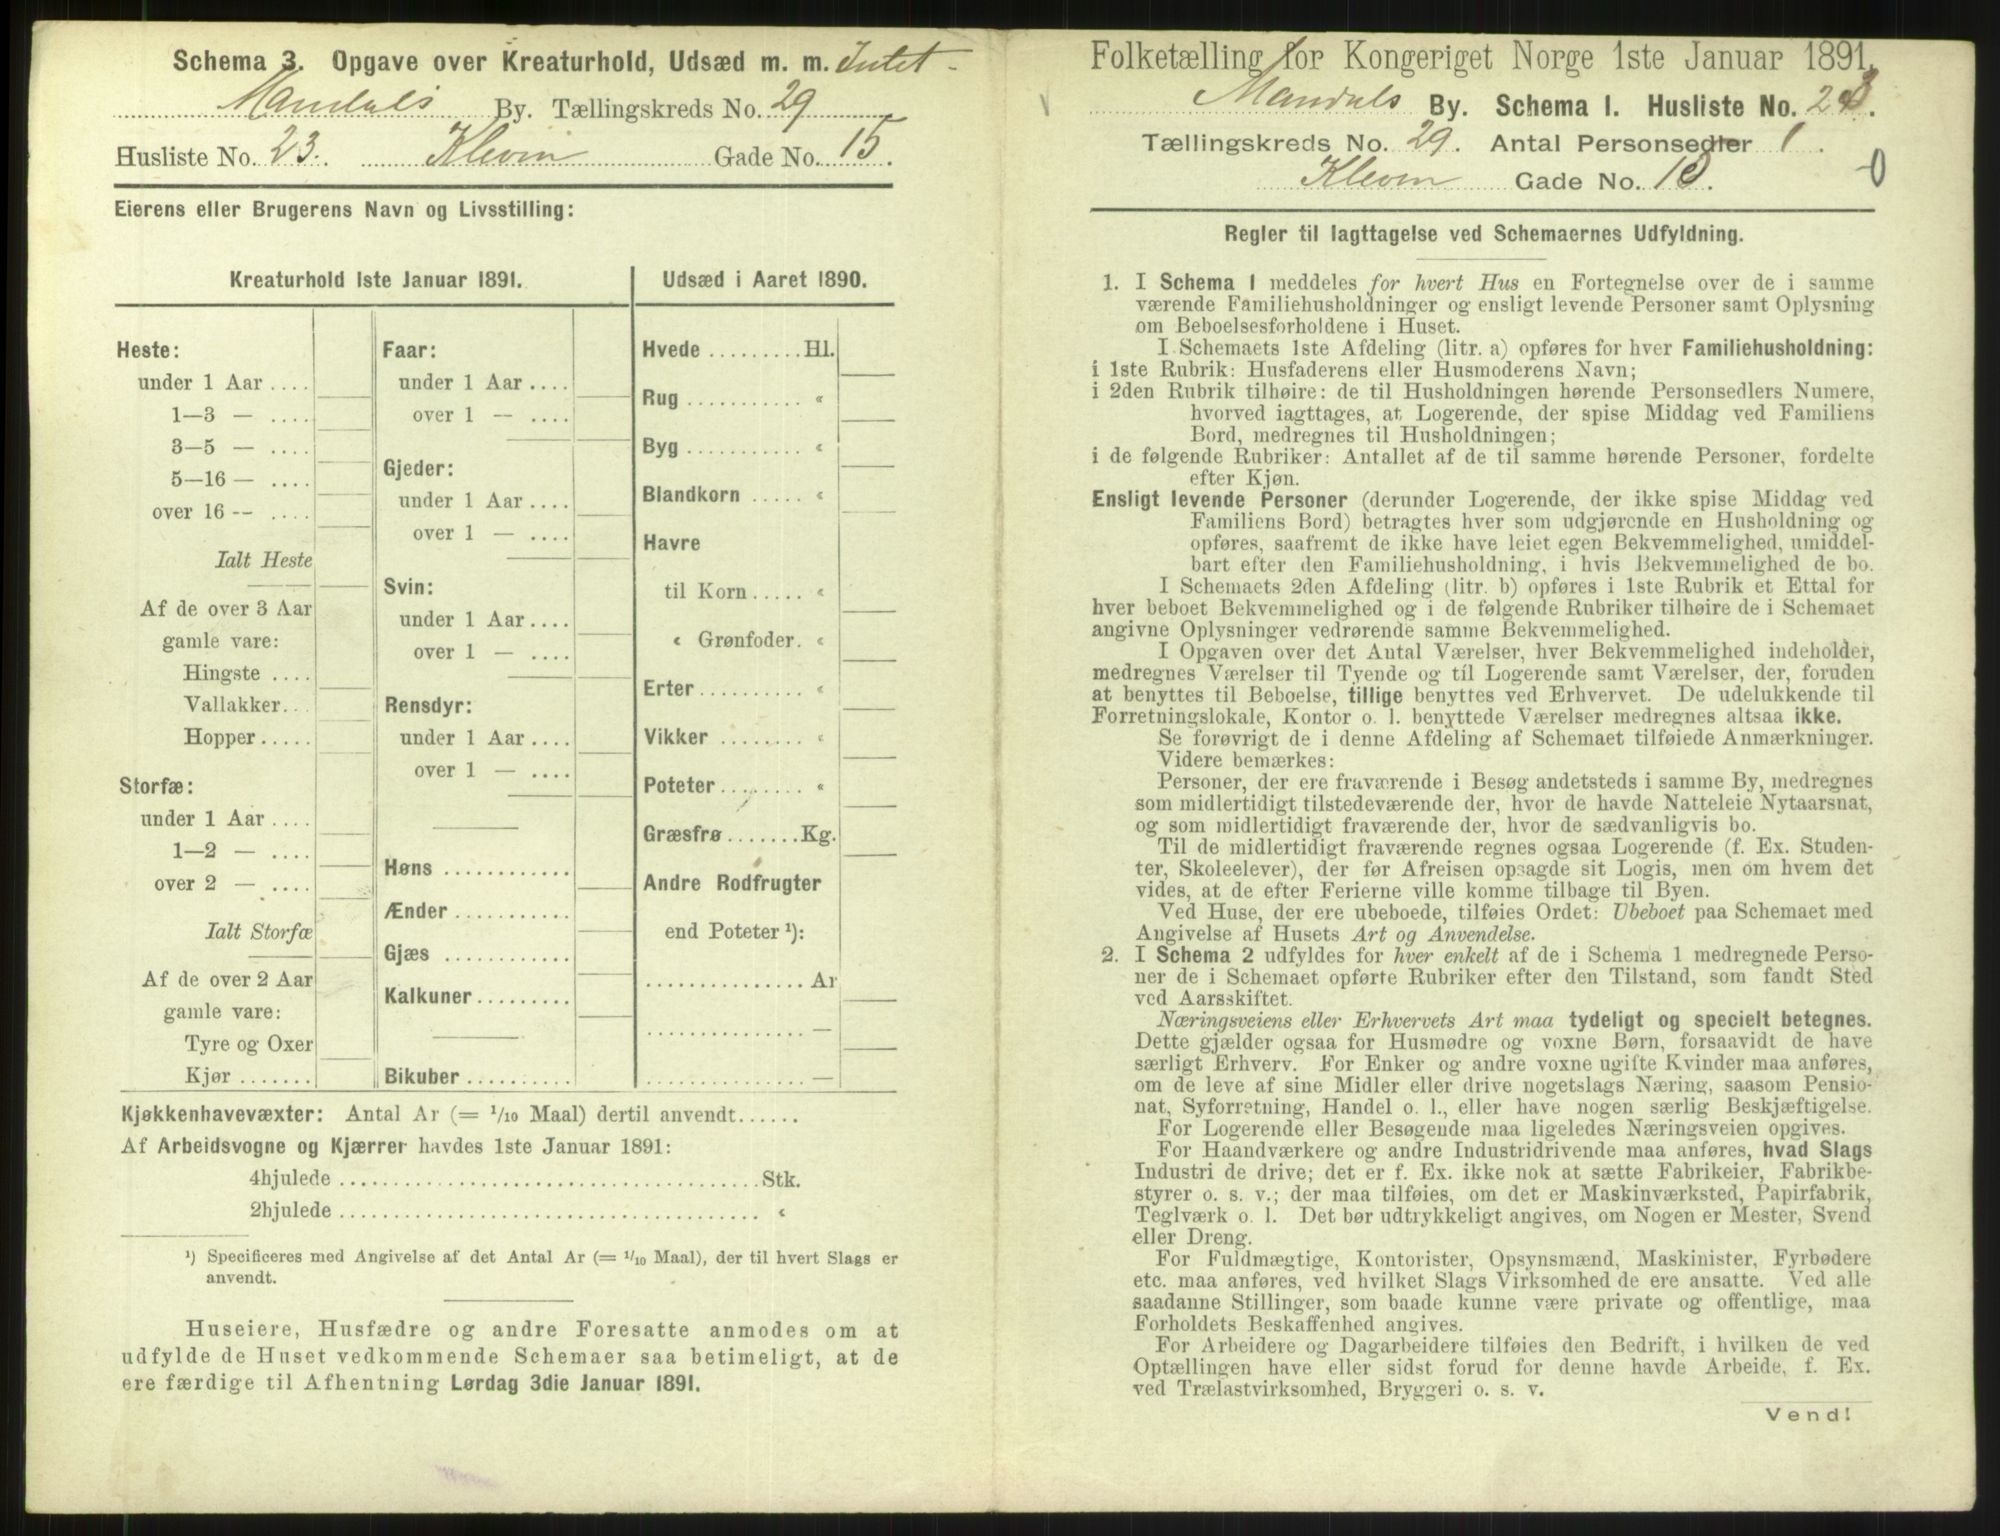 Schema 3. Opgave over Kreaturhold, Udsæd m. m. Intet -
Mandals By. Tællingskreds No. 29
Husliste No. 23. Klevin Gade No. 15.
Eierens eller Brugerens Navn og Livsstilling:
Kreaturhold 1ste Januar 1891.
Heste:
under 1 Aar ....
1—3 — ....
3—5 — ....
5—16 — ....
over 16 -- ....
Ialt Heste
Af de over 3 Aar
gamle vare:
Hingste ....
Vallakker...
Hopper.....
Storfæ:
under 1 Aar ....
1—2 — ....
over 2 — ....
Ialt Storfæ
Af de over 2 Aar
gamle vare:
Tyre og Oxer
Kjør .......
Faar:
under 1 Aar ....
over 1 — ....
Gjeder:
under 1 Aar ....
over 1 — ....
Svin:
under 1 Aar ....
over 1 — ....
Rensdyr:
under 1 Aar ....
over 1 — ....
Høns ............
Ænder ...........
Gjæs ............
Kalkuner .........
Bikuber ..........
Udsæd i Aaret 1890.
Hvede .........Hl.
Rug ........... «
Byg ........... «
Blandkorn ..... «
Havre
til Korn ..... «
« Grønfoder. «
Erter .......... «
Vikker ........ «
Poteter ........ «
Græsfrø .......Kg.
Andre Rodfrugter
end Poteter ¹):
............... Ar
............... —
............... —
Kjøkkenhavevæxter: Antal Ar (= 1/10 Maal) dertil anvendt......
Af Arbeidsvogne og Kjærrer havdes 1ste Januar 1891:
4hjulede .....................................Stk.
2hjulede ..................................... «
¹) Specificeres med Angivelse af det Antal Ar (= 1/10 Maal), der til hvert Slags er
anvendt.
Huseiere, Husfædre og andre Foresatte anmodes om at
udfylde de Huset vedkommende Schemaer saa betimeligt, at de
ere færdige til Afhentning Lørdag 3die Januar 1891.
Folketælling for Kongeriget Norge 1ste Januar 1891.
Mandals By. Schema I. Husliste No. 23.
Tællingskreds No. 29. Antal Personsedler 1.
Klevin Gade No. 15. -0
Regler til Iagttagelse ved Schemaernes Udfyldning.
1. I Schema 1 meddeles for hvert Hus en Fortegnelse over de i samme
værende Familiehusholdninger og ensligt levende Personer samt Oplysning
om Beboelsesforholdene i Huset.
I Schemaets 1ste Afdeling (litr. a) opføres for hver Familiehusholdning:
i 1ste Rubrik: Husfaderens eller Husmoderens Navn;
i 2den Rubrik tilhøire: de til Husholdningen hørende Personsedlers Numere,
hvorved iagttages, at Logerende, der spise Middag ved Familiens
Bord, medregnes til Husholdningen;
i de følgende Rubriker: Antallet af de til samme hørende Personer, fordelte
efter Kjøn.
Ensligt levende Personer (derunder Logerende, der ikke spise Middag ved
Familiens Bord) betragtes hver som udgjørende en Husholdning og
opføres, saafremt de ikke have leiet egen Bekvemmelighed, umiddel-
bart efter den Familiehusholdning, i hvis Bekvemmelighed de bo.
I Schemaets 2den Afdeling (litr. b) opføres i 1ste Rubrik et Ettal for
hver beboet Bekvemmelighed og i de følgende Rubriker tilhøire de i Schemaet
angivne Oplysninger vedrørende samme Bekvemmelighed.
I Opgaven over det Antal Værelser, hver Bekvemmelighed indeholder,
medregnes Værelser til Tyende og til Logerende samt Værelser, der, foruden
at benyttes til Beboelse, tillige benyttes ved Erhvervet. De udelukkende til
Forretningslokale, Kontor o. l. benyttede Værelser medregnes altsaa ikke.
Se forøvrigt de i denne Afdeling af Schemaet tilføiede Anmærkninger.
Videre bemærkes:
Personer, der ere fraværende i Besøg andetsteds i samme By, medregnes
som midlertidigt tilstedeværende der, hvor de havde Natteleie Nytaarsnat,
og som midlertidigt fraværende der, hvor de sædvanligvis bo.
Til de midlertidigt fraværende regnes ogsaa Logerende (f. Ex. Studen-
ter, Skoleelever), der før Afreisen opsagde sit Logis, men om hvem det
vides, at de efter Ferierne ville komme tilbage til Byen.
Ved Huse, der ere ubeboede, tilføies Ordet: Ubeboet paa Schemaet med
Angivelse af Husets Art og Anvendelse.
2. I Schema 2 udfyldes for hver enkelt af de i Schema 1 medregnede Perso-
ner de i Schemaet opførte Rubriker efter den Tilstand, som fandt Sted
ved Aarsskiftet.
Næringsveiens eller Erhvervets Art maa tydeligt og specielt betegnes.
Dette gjælder ogsaa for Husmødre og voxne Børn, forsaavidt de have
særligt Erhverv. For Enker og andre voxne ugifte Kvinder maa anføres,
om de leve af sine Midler eller drive nogetslags Næring, saasom Pensio-
nat, Syforretning, Handel o. l., eller have nogen særlig Beskjæftigelse.
For Logerende eller Besøgende maa ligeledes Næringsveien opgives.
For Haandværkere og andre Industridrivende maa anføres, hvad Slags
Industri de drive; det er f. Ex. ikke nok at sætte Fabrikeier, Fabrikbe-
styrer o. s. v.; der maa tilføies, om det er Maskinværksted, Papirfabrik,
Teglværk o. l. Det bør udtrykkeligt angives, om Nogen er Mester, Svend
eller Dreng.
For Fuldmægtige, Kontorister, Opsynsmænd, Maskinister, Fyrbødere
etc. maa anføres, ved hvilket Slags Virksomhed de ere ansatte. Ved alle
saadanne Stillinger, som baade kunne være private og offentlige, maa
Forholdets Beskaffenhed angives.
For Arbeidere og Dagarbeidere tilføies den Bedrift, i hvilken de ved
Optællingen have eller sidst forud for denne havde Arbeide, f. Ex.
ved Trælastvirksomhed, Bryggeri o. s. v.
Vend!